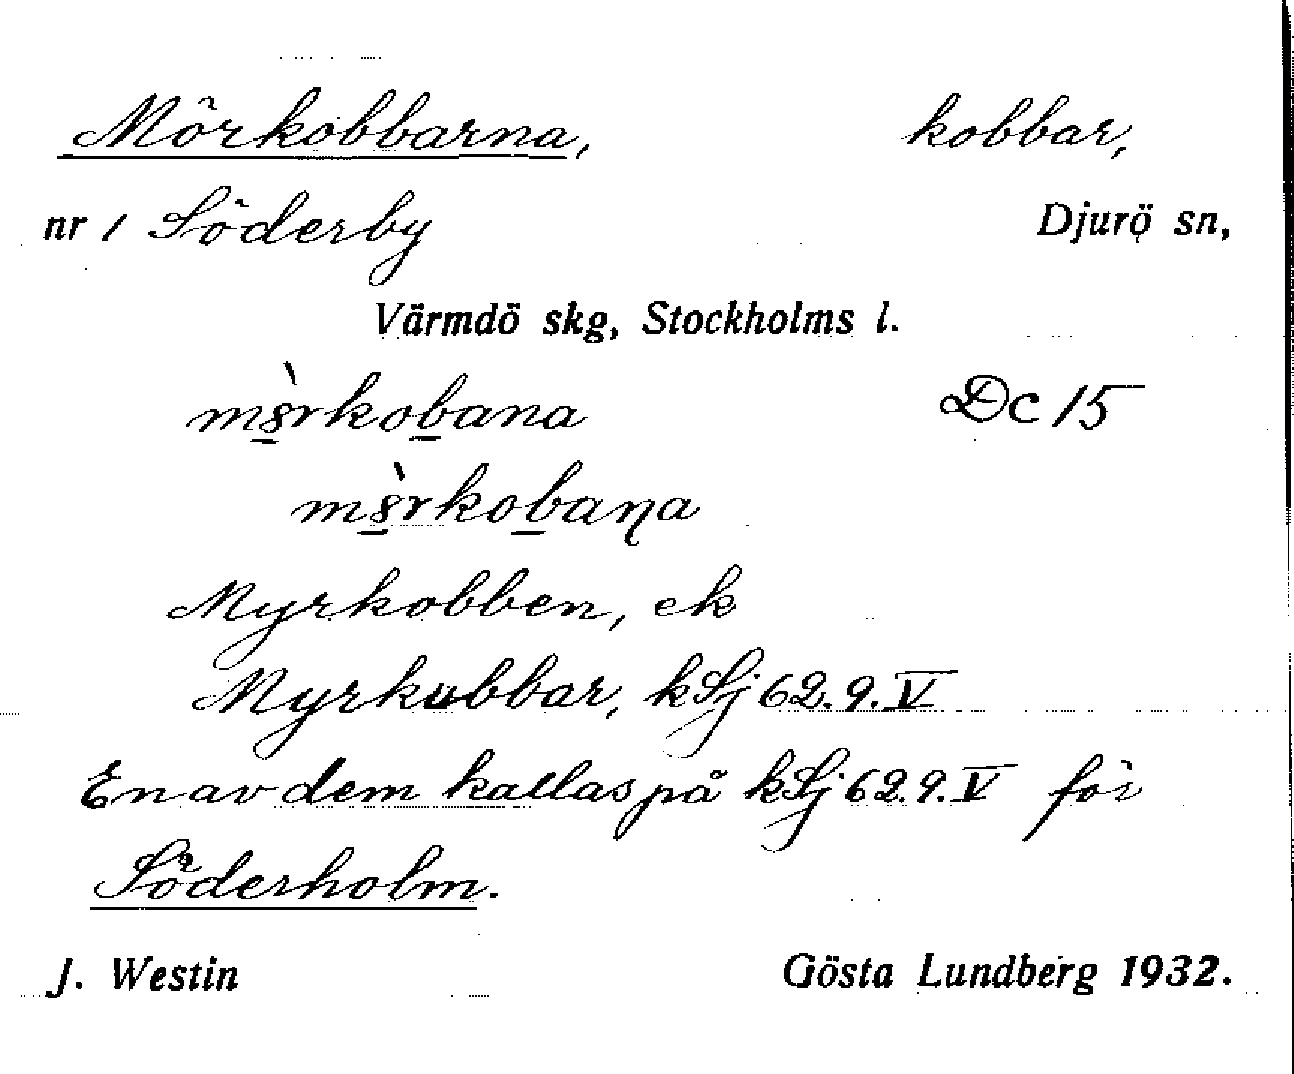 Mörkobbarna, kobbar,
nr 1 Söderby Djurö sn,
Värmdö skg, Stockholms l.
Dc 15
Myrkobben, ek
Myrkubbar, kSj 62.9.V
En av dem kallas på kSj 62.9.V för
Söderholm.
J. Westin Gösta Lundberg 1932.